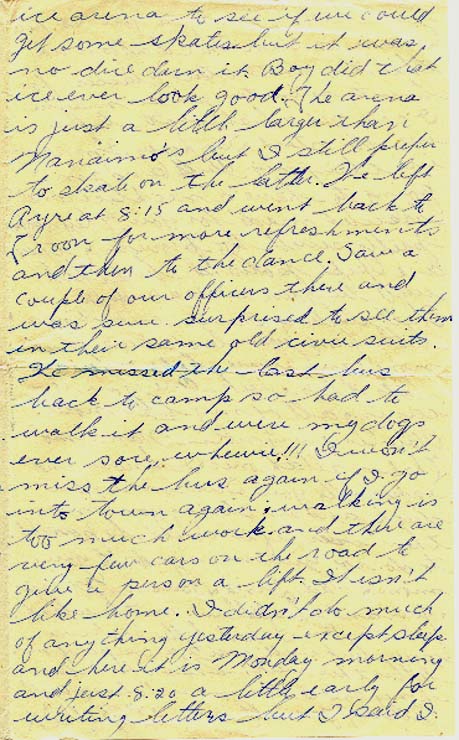 ice arena to see if we could
get some skates but it was
no dice darn it. Boy did that
ice ever look good. The arena
is just a little larger than
Nanaimo's but I still prefer
to skate on the latter. We left
Ayre at 8:15 and went back to
Troon for more refreshments
and then to the dance. Saw a
couple of our officers there and
was sure surprised to see them
in their same old civie suits.
We missed the last bus
back to camp so had to
walk it and were my dogs
ever sore, whewie!!! I won't
miss the bus again if I go
into town again; walking is
too much work and there are
very few cars on the road to
give a person a lift. It isn't
like home. I didn't do much
of anything yesterday except sleep
and here it is Monday morning
and just 8:20 a little early for
writing letters but I said I